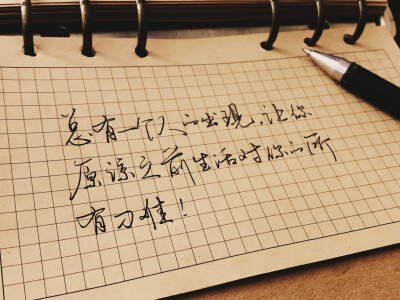 总有一个人的出现,让你
原谅之前生活对你的所
有刁难!